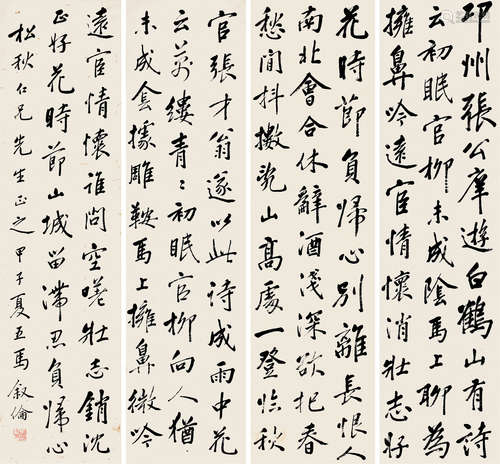 邛州張公庠遊白鶴山有詩
云初眠官柳未成陰馬上聊為
擁鼻吟遠宦情懷消壯志好
花時節負歸心別離長恨人
南北會合休辭酒淺深欲把春
愁閒抖擻亂山高處一登臨秋
官張才翁遂以此詩成雨中花
云萬縷青青初眠官柳向人猶
未成侌據雕鞍馬上擁鼻微吟
遠宦情懷誰問空嗟壯志銷沈
正好花時節山城留滯忍負歸心
松秋仁兄先生正之 甲子夏五馬敘倫